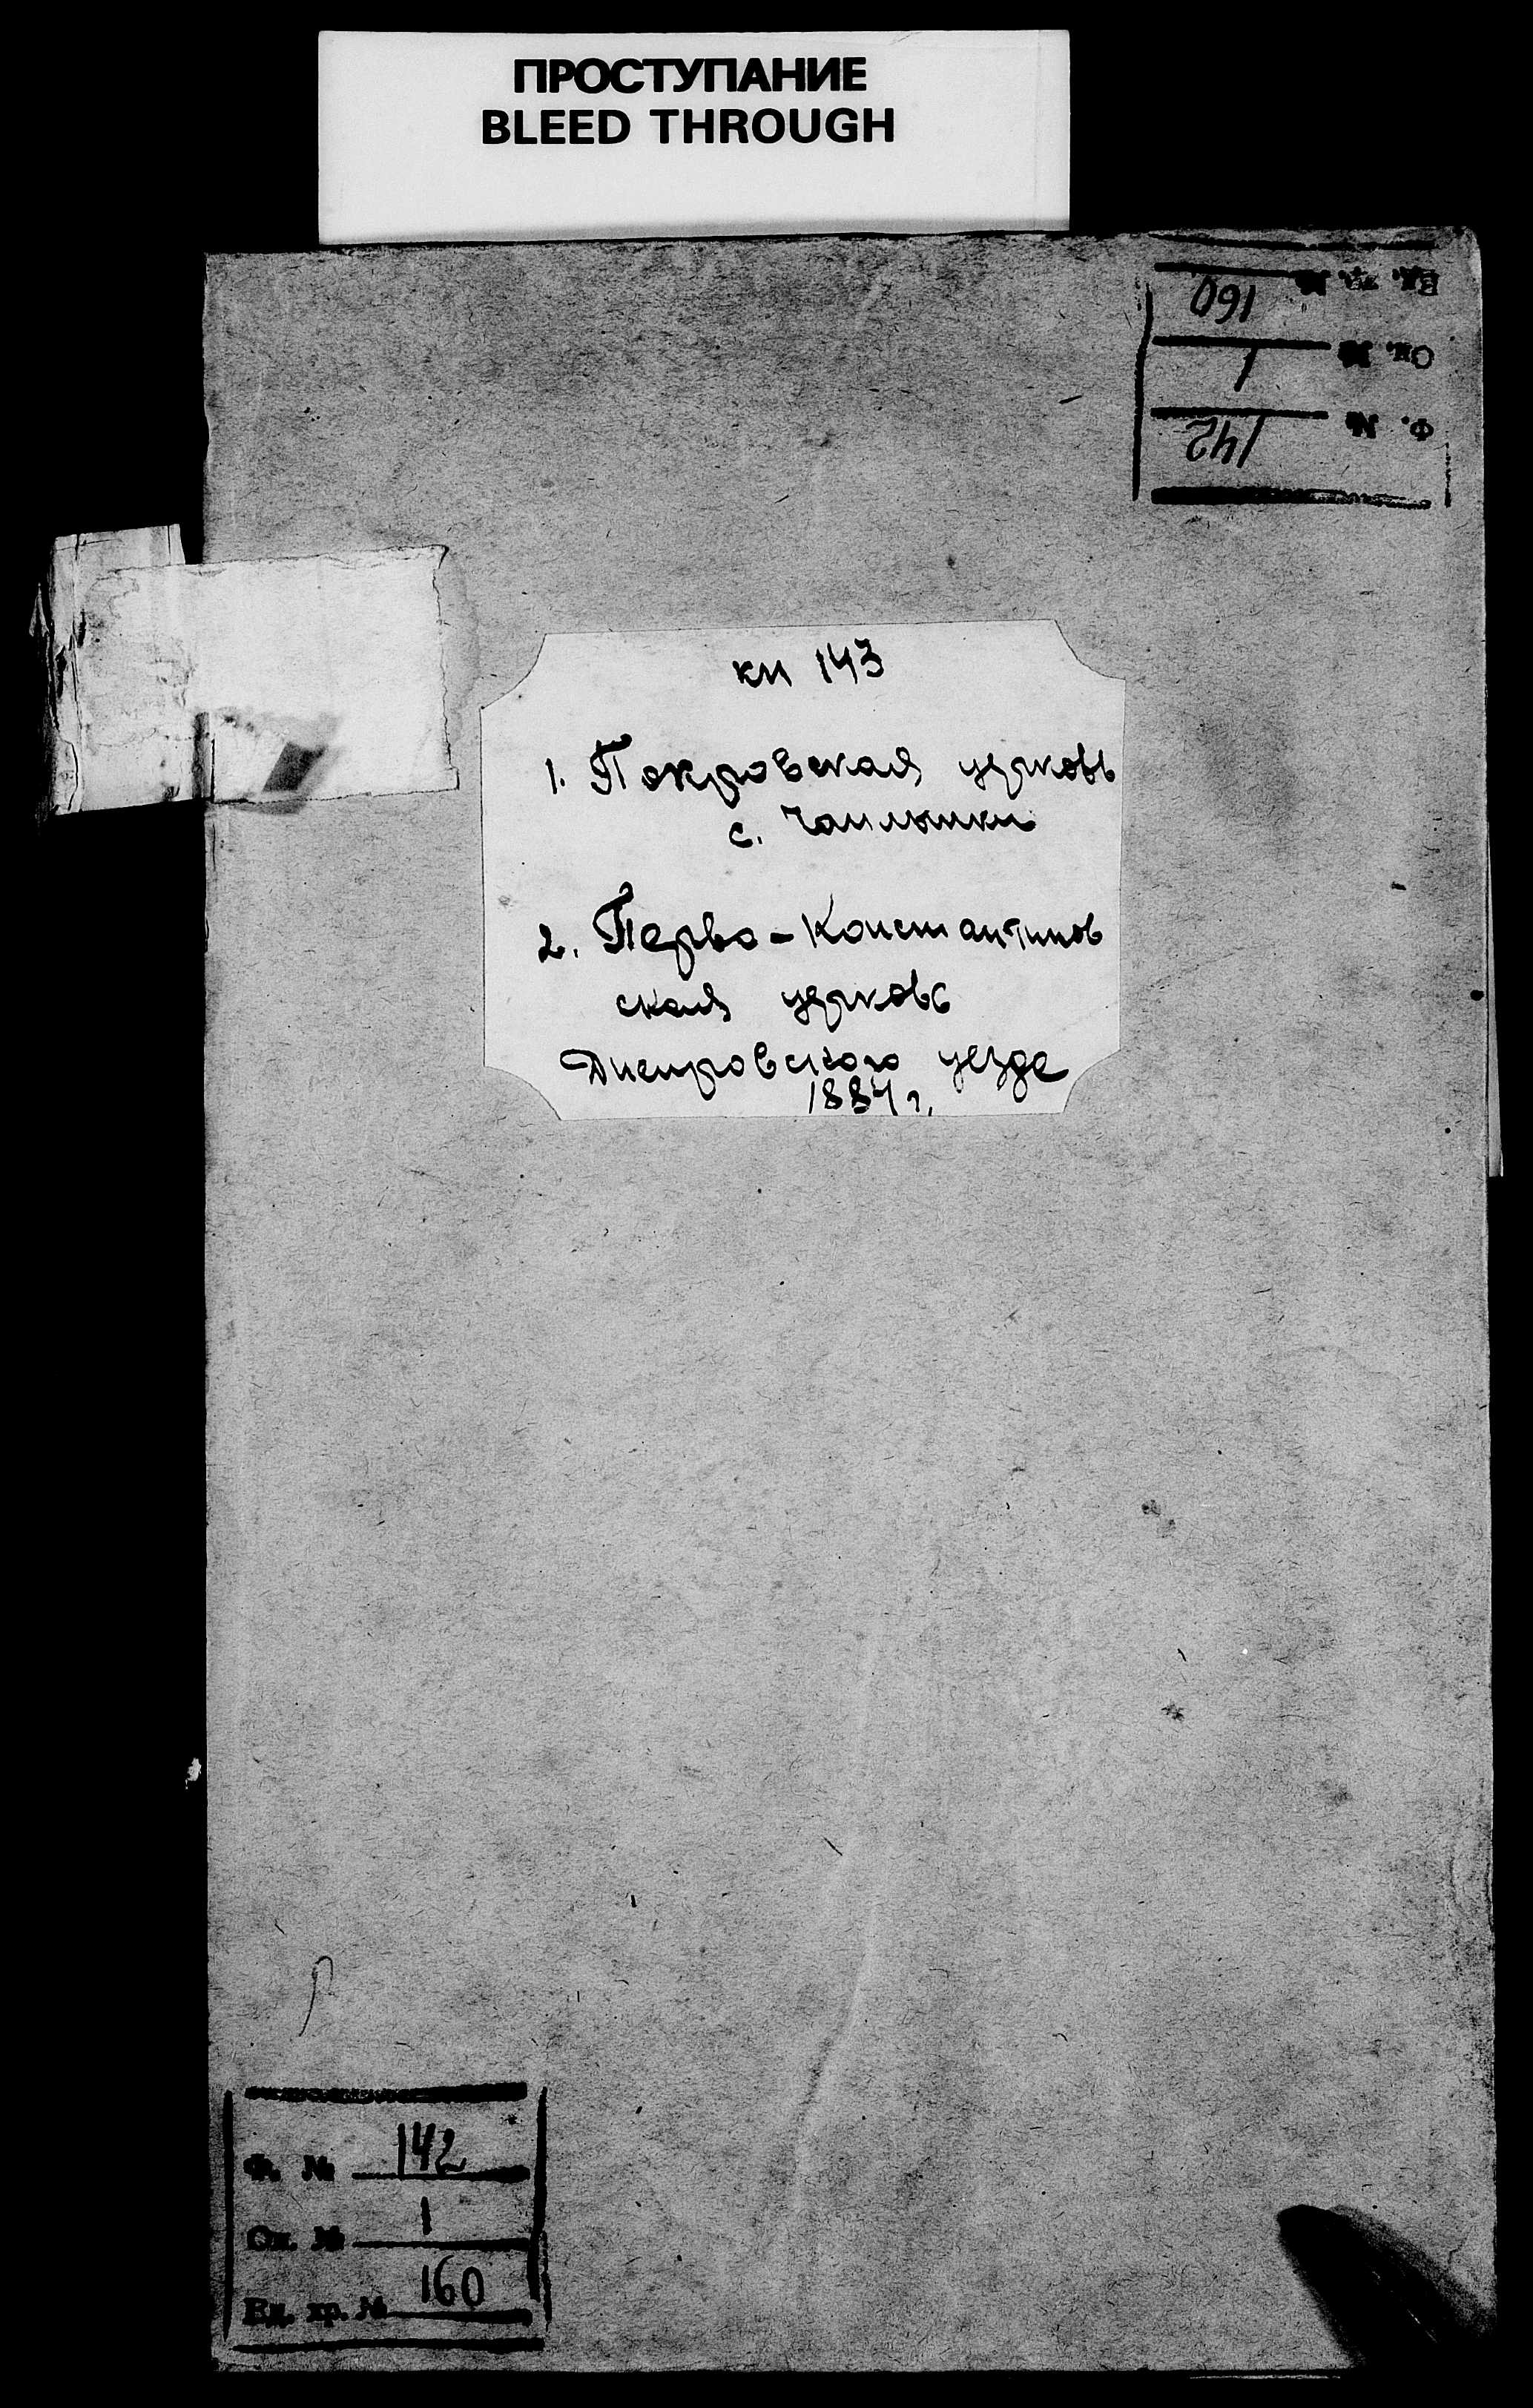 ПРОСТУПАНИЕ
BLEED THROUGH
Ед. хр. № 160
Оп. № 1
Ф. № 142
кн 143
1. Покровская церковь
с. Чаплынки
2. Перво-Константинов
ская церковь
Днепровского уезда
1884 г.
Ф. № 142
Оп. № 1
Ед. хр. № 160